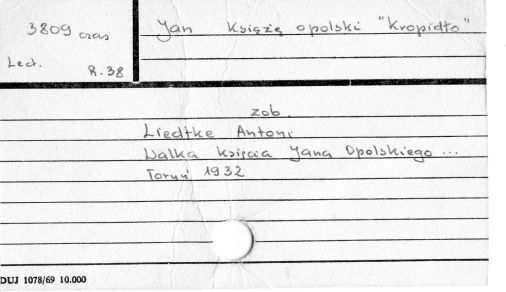 3809 czas
Lect. R.38
Jan Książę opolski "Kropidło"
zob.
Liedtke Antoni
Walka księcia Jana Opolskiego ...
Toruń 1932
DUJ 1078/69 10.000